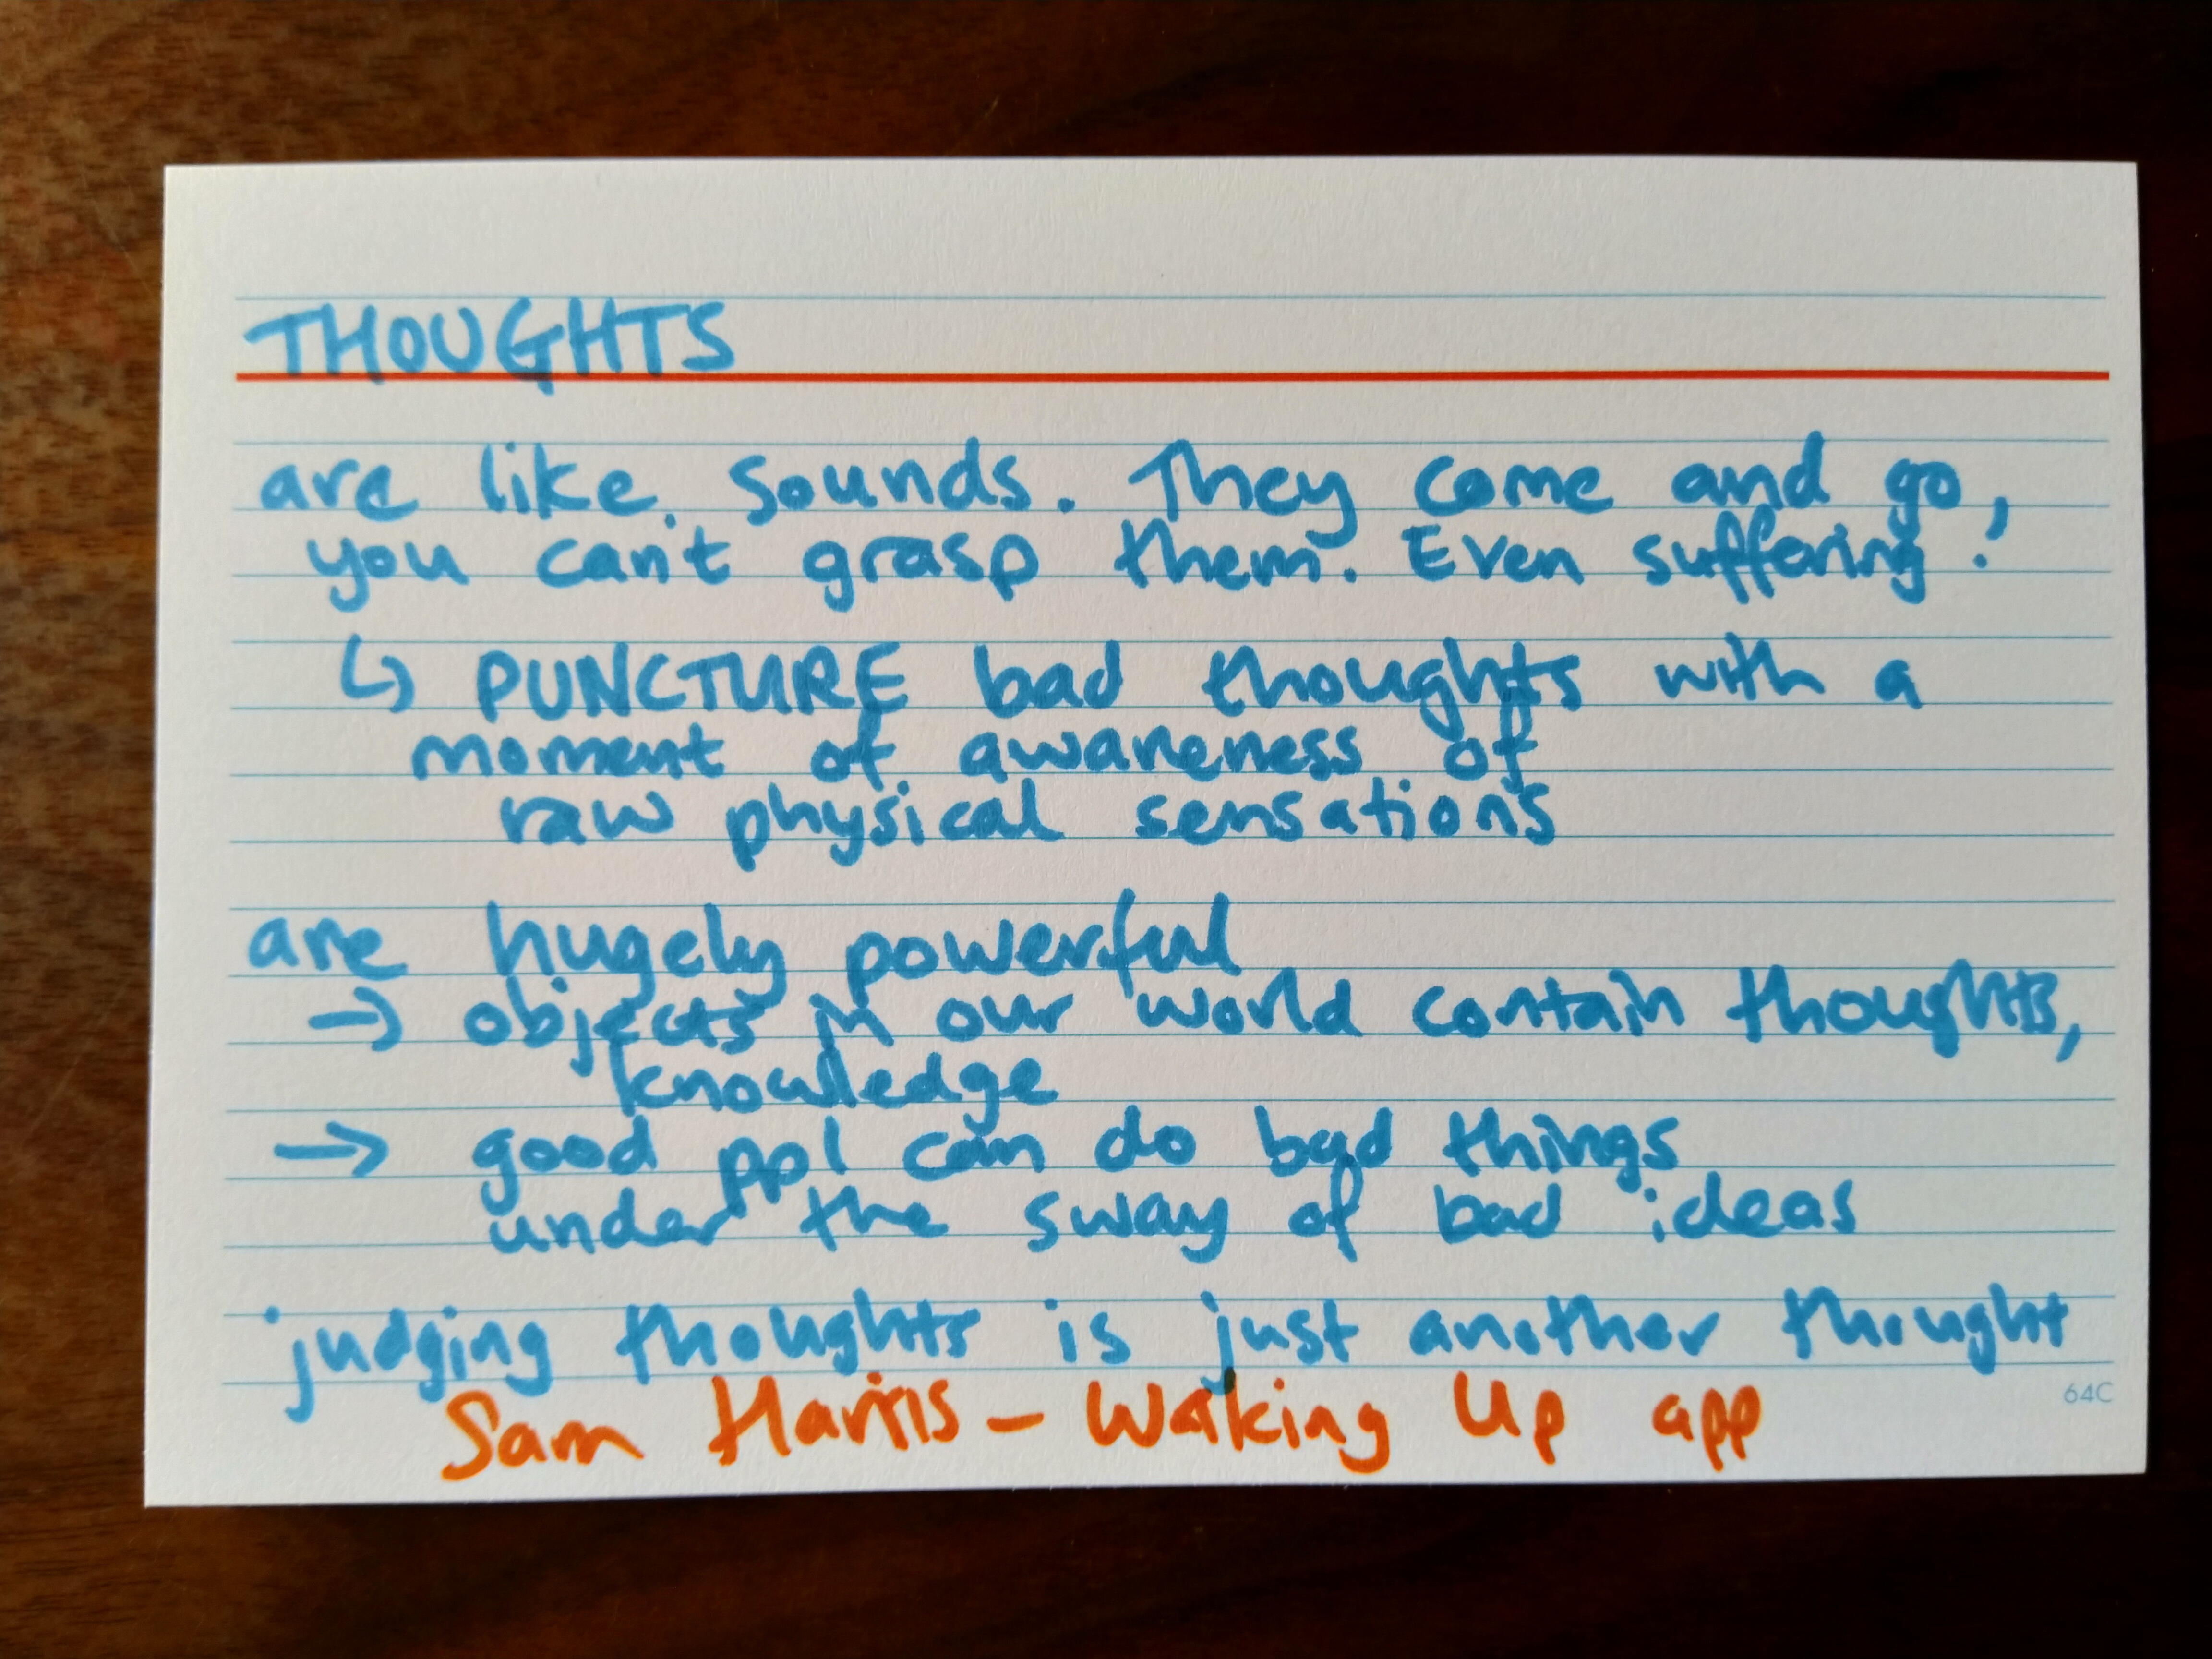 THOUGHTS
are like sounds. They come and go,
you can't grasp them. Even suffering!
↳ PUNCTURE bad thoughts with a
moment of awareness of
raw physical sensations
are hugely powerful
→ objects in our world contain thoughts,
knowledge
→ good ppl can do bad things
under the sway of bad ideas
judging thoughts is just another thought
64C
Sam Harris - Waking Up app